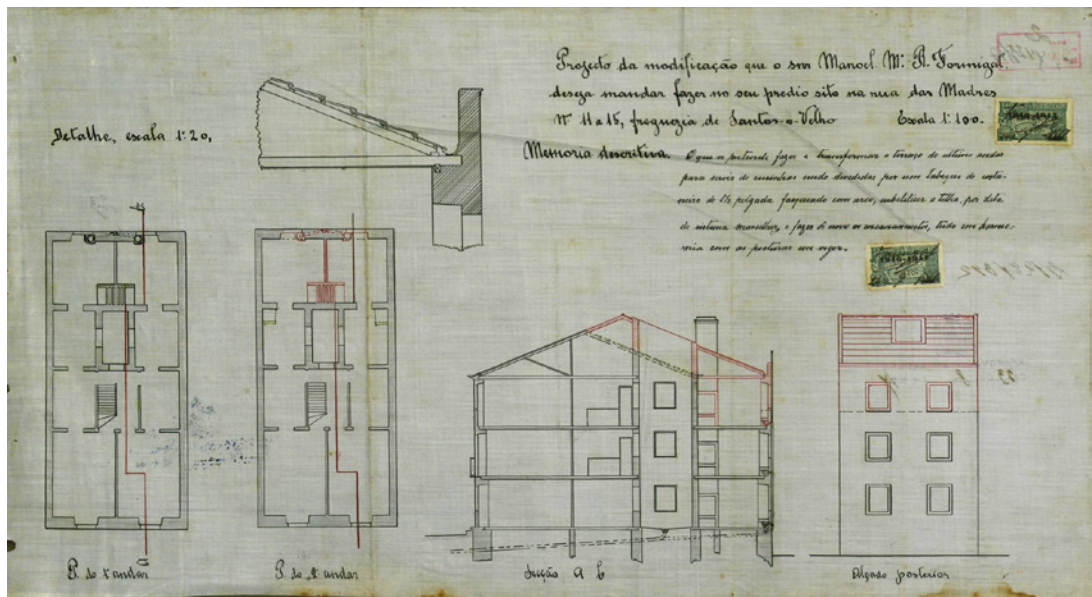 Projecto da modificação que o snr Manoel Mª R. Formigal
deseja mandar fazer no seu predio sito na rua das Madres
Nº 11 a 15, freguezia de Santos-o-Velho Escala 1:100.
Detalhe, escala 1:20,
Memoria descritiva. O que se pretende fazer é transformar o terraço do ultimo andar
para casas de cosinhas sendo divididas por um tabique de costa-
neira de 1½ polgada fasquiado com arco, substituir a telha por
de systema marselhez, e fazer de novo os encanamentos, tudo em harmo-
nia com as posturas em vigor.
P. do 1º andar
P. do 2º andar
Secção a b
Alçado posterior